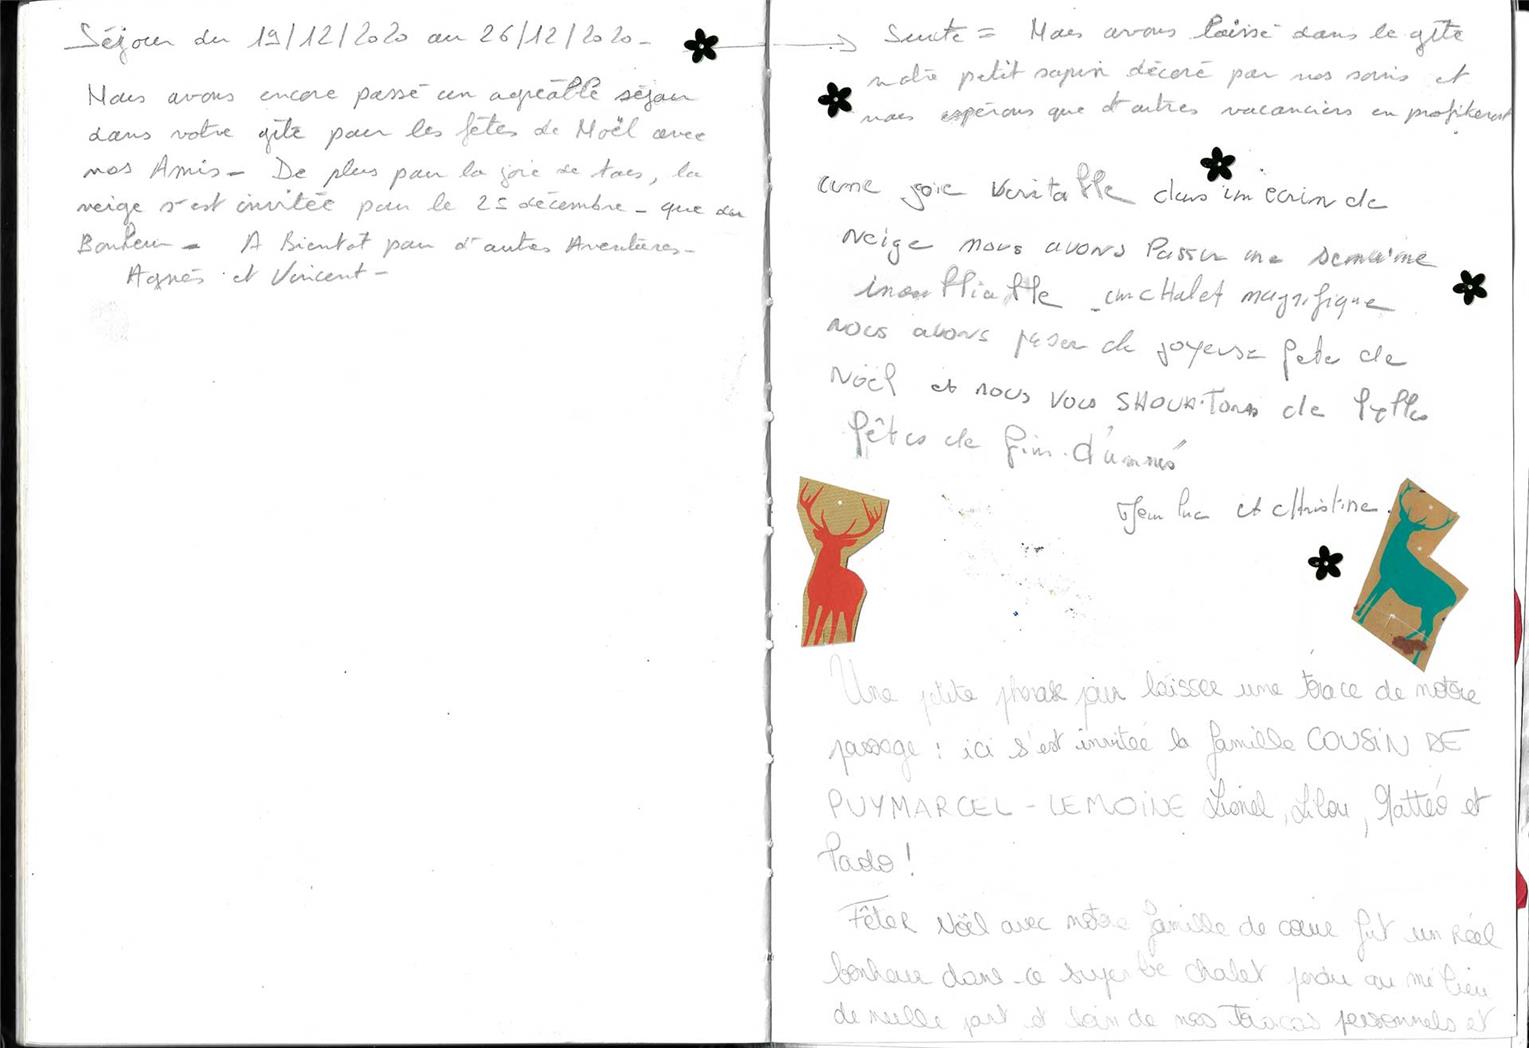 Séjour du 19/12/2020 au 26/12/2020 -
Nous avons encore passé un agréable séjour
dans votre gîte pour les fêtes de Noël avec
nos Amis - De plus pour la joie de tous, la
neige s'est invitée pour le 25 décembre - que du
Bonheur - A Bientot pour d'autres Aventures -
Agnès et Vincent -
Suite = Nous avons laissé dans le gîte
notre petit sapin décoré par nos soins et
nous espérons que d'autres vacanciers en profiteront
une joie veritable dans un écrin de
Neige nous avons Passer une semaine
inoubliable un cHalet magnifique
nous avons passer de joyeuse fete de
Noël et nous vous SHOUAITons de belles
fêtes de fin d'année
Jean luc et cHristine.
Une petite phrase pour laisser une trace de notre
passage : ici s'est invitée la famille COUSIN DE
PUYMARCEL - LEMOINE Lionel, Lilou, Mattéo et
Pado !
Fêter Noël avec notre famille de cœur fut un réel
bonheur dans ce superbe chalet perdu au milieu
de nulle part et loin de nos tracas personnels et